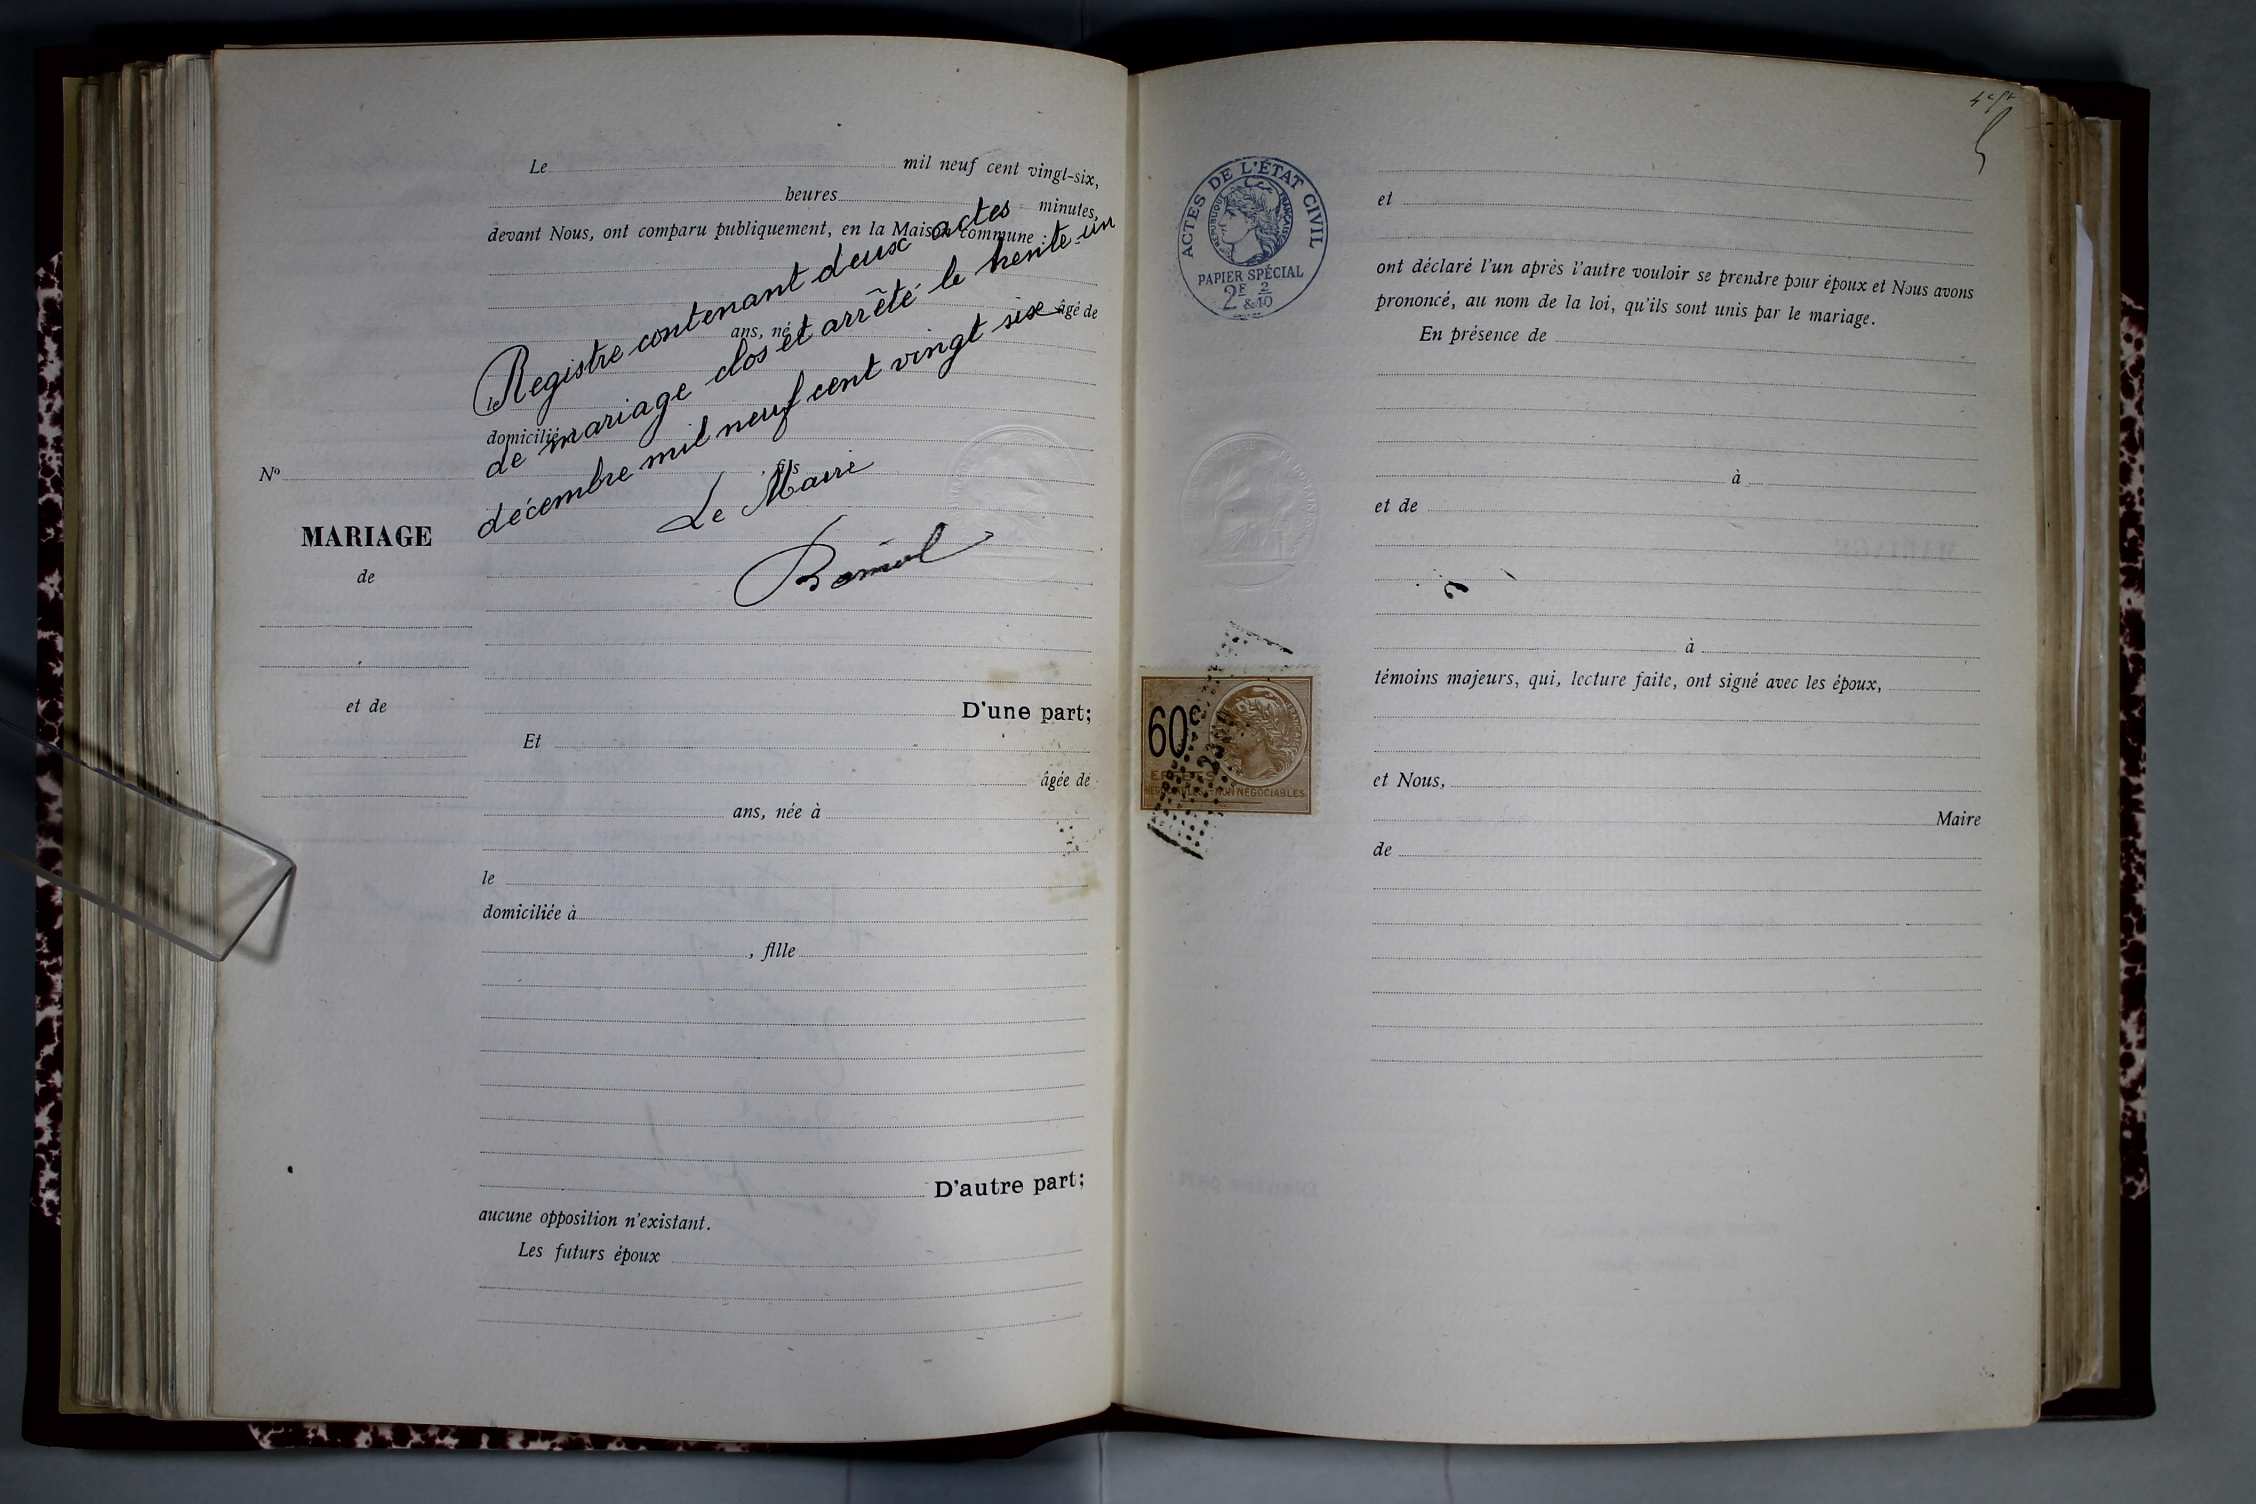 Le mil neuf cent vingt-six,
heures minutes,
devant Nous, ont comparu publiquement, en la Maison commune :
âgé de
ans, né
le
domicilié
, fils
Registre contenant deux actes
de mariage clos et arrêté le trente un
décembre mil neuf cent vingt six
Le Maire
No
MARIAGE
de
et de
D'une part;
Et
âgée de
ans, née à
le
domiciliée à
, fille
D'autre part;
aucune opposition n'existant.
Les futurs époux
ACTES DE L'ÉTAT CIVIL
RÉPUBLIQUE FRANÇAISE
PAPIER SPÉCIAL
2F & 2/10
60c
EFFETS
NÉGOCIABLES NON NÉGOCIABLES
et
ont déclaré l'un après l'autre vouloir se prendre pour époux et Nous avons
prononcé, au nom de la loi, qu'ils sont unis par le mariage.
En présence de
à
et de
à
témoins majeurs, qui, lecture faite, ont signé avec les époux,
et Nous,
Maire
de